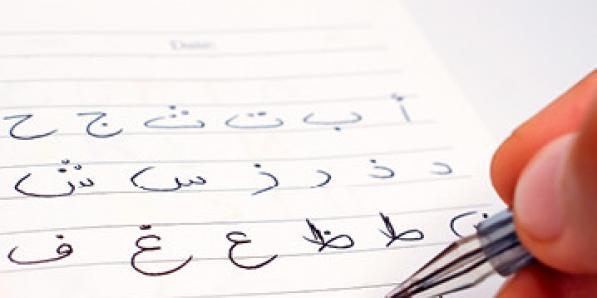 Date:
أ ب ت ث ج ح
د ذ ر ز س ش
ط ظ ع غ ف